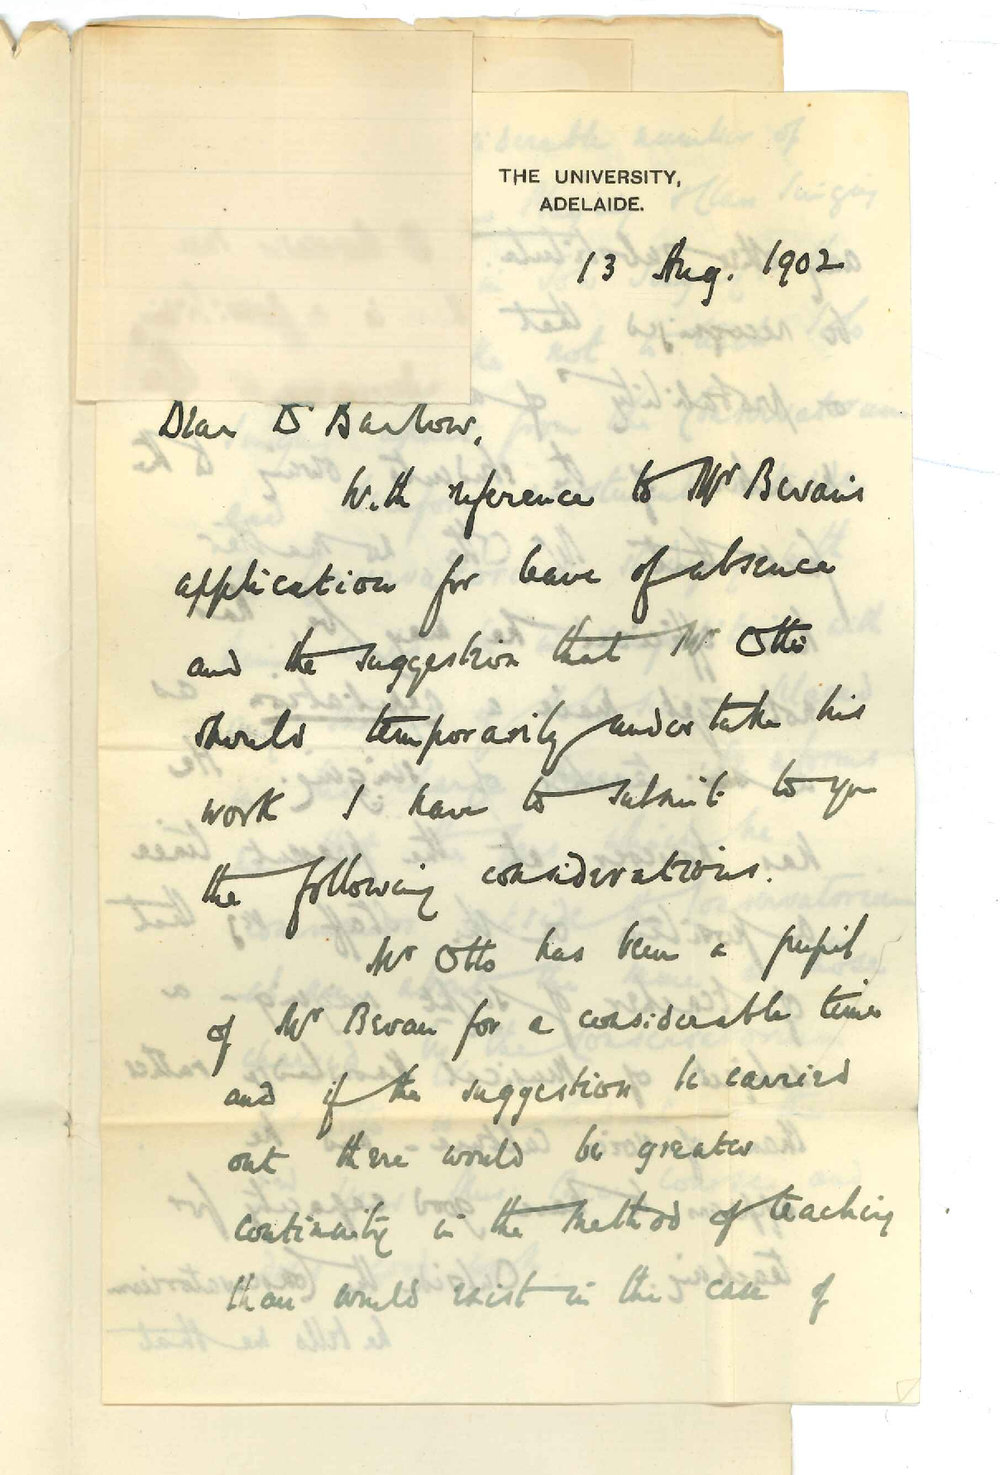 THE UNIVERSITY,
ADELAIDE.
13 Aug. 1902
Dear Dr Barlow,
With reference to Mr Bevan's
application for leave of absence
and the suggestion that Mr Otto
should temporarily undertake his
work I have to submit to you
the following considerations.
Mr Otto has been a pupil
of Mr Bevan for a considerable time
and if the suggestion be carried
out there would be greater
continuity in the method of teaching
than would exist in the case of